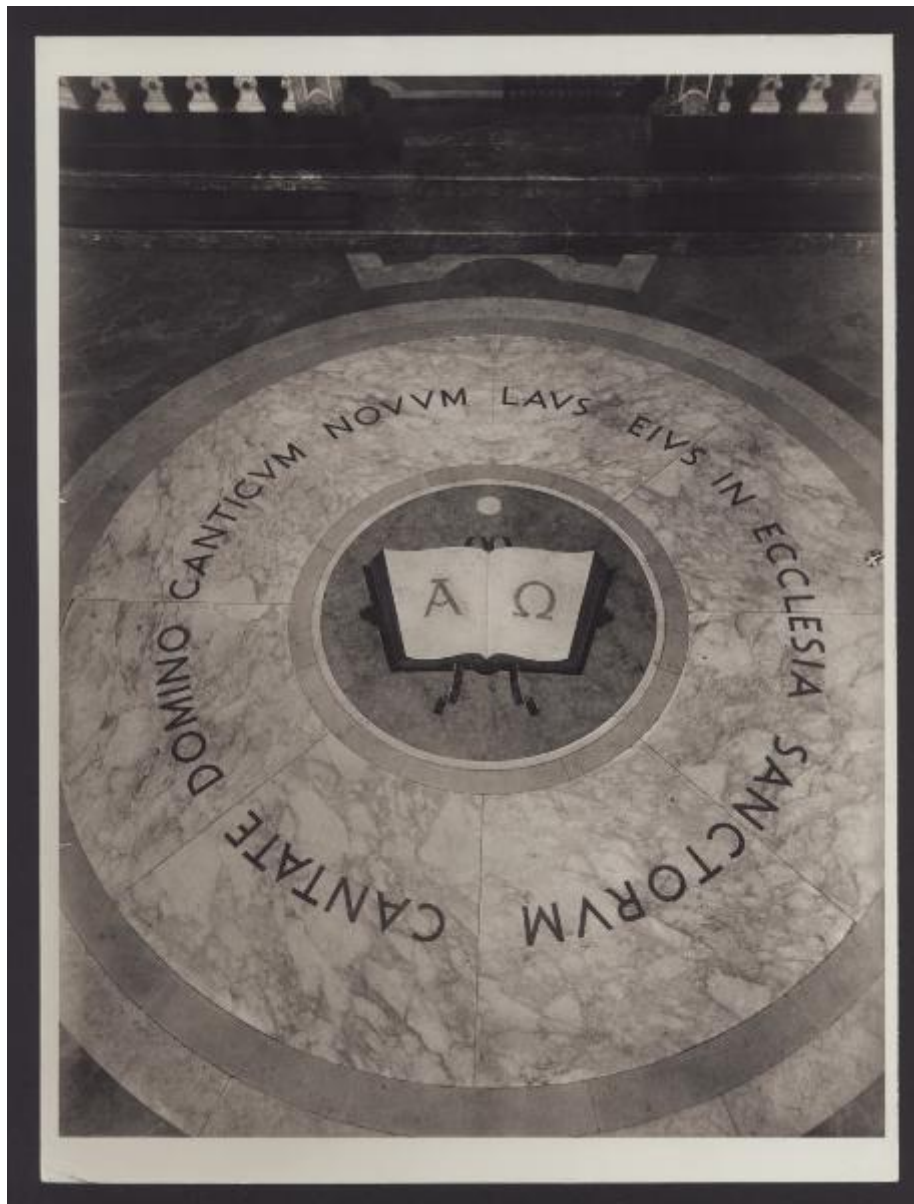 CANTATE DOMINO CANTICVM NOVVM LAVS EIVS IN ECCLESIA SANCTORVM
A Ω